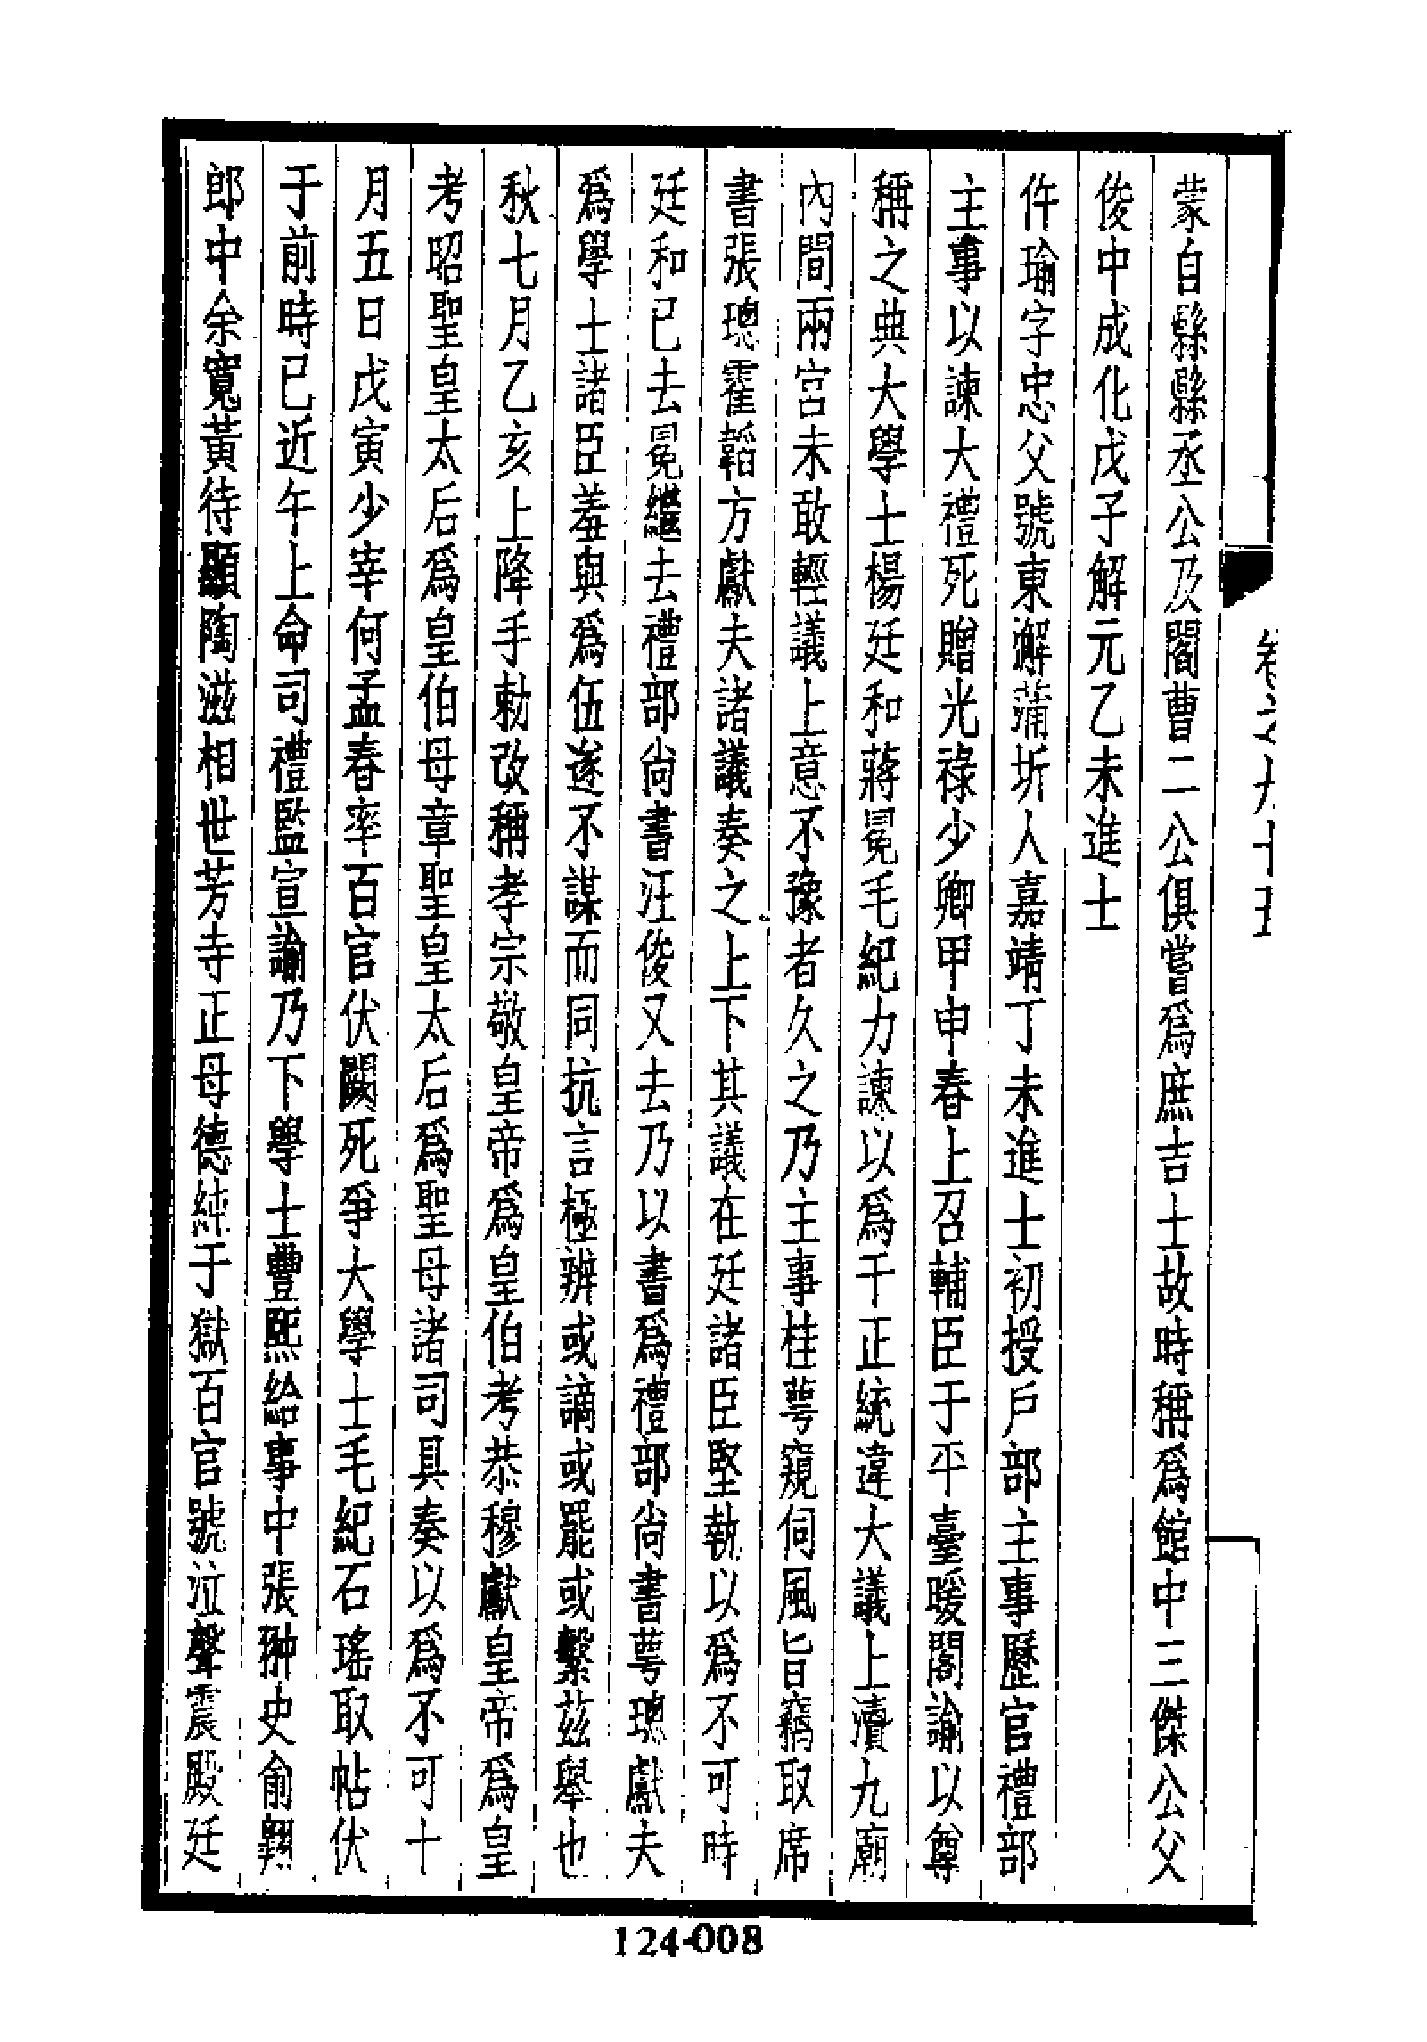 卷之九十五
蒙自縣縣丞公及閣曹二公俱嘗爲庶吉士故時稱爲館中三傑公父
俊中成化戊子解元乙未進士
仵瑜字忠父號東澥蒲圻人嘉靖丁未進士初授戶部主事歷官禮部
主事以諫大禮死贈光祿少卿甲申春上召輔臣于平臺暖閣諭以尊
稱之典大學士楊廷和蔣冕毛紀力諫以爲干正統違大議上瀆九廟
內間兩宮未敢輕議上意不豫者久之乃主事桂萼窺伺風旨竊取席
書張璁霍韜方獻夫諸議奏之上下其議在廷諸臣堅執以爲不可時
廷和已去冕繼去禮部尙書汪俊又去乃以書爲禮部尙書萼璁獻夫
爲學士諸臣羞與爲伍遂不謀而同抗言極辨或謫或罷或繫茲舉也
秋七月乙亥上降手勅改稱孝宗敬皇帝爲皇伯考恭穆獻皇帝爲皇
考昭聖皇太后爲皇伯母章聖皇太后爲聖母諸司具奏以爲不可十
月五日戊寅少宰何孟春率百官伏闕死爭大學士毛紀石瑤取帖伏
于前時已近午上命司禮監宣諭乃下學士豐熙給事中張翀史俞翱
郎中余寬黃待顯陶滋相世芳寺正母德純于獄百官號泣聲震殿廷
124-008